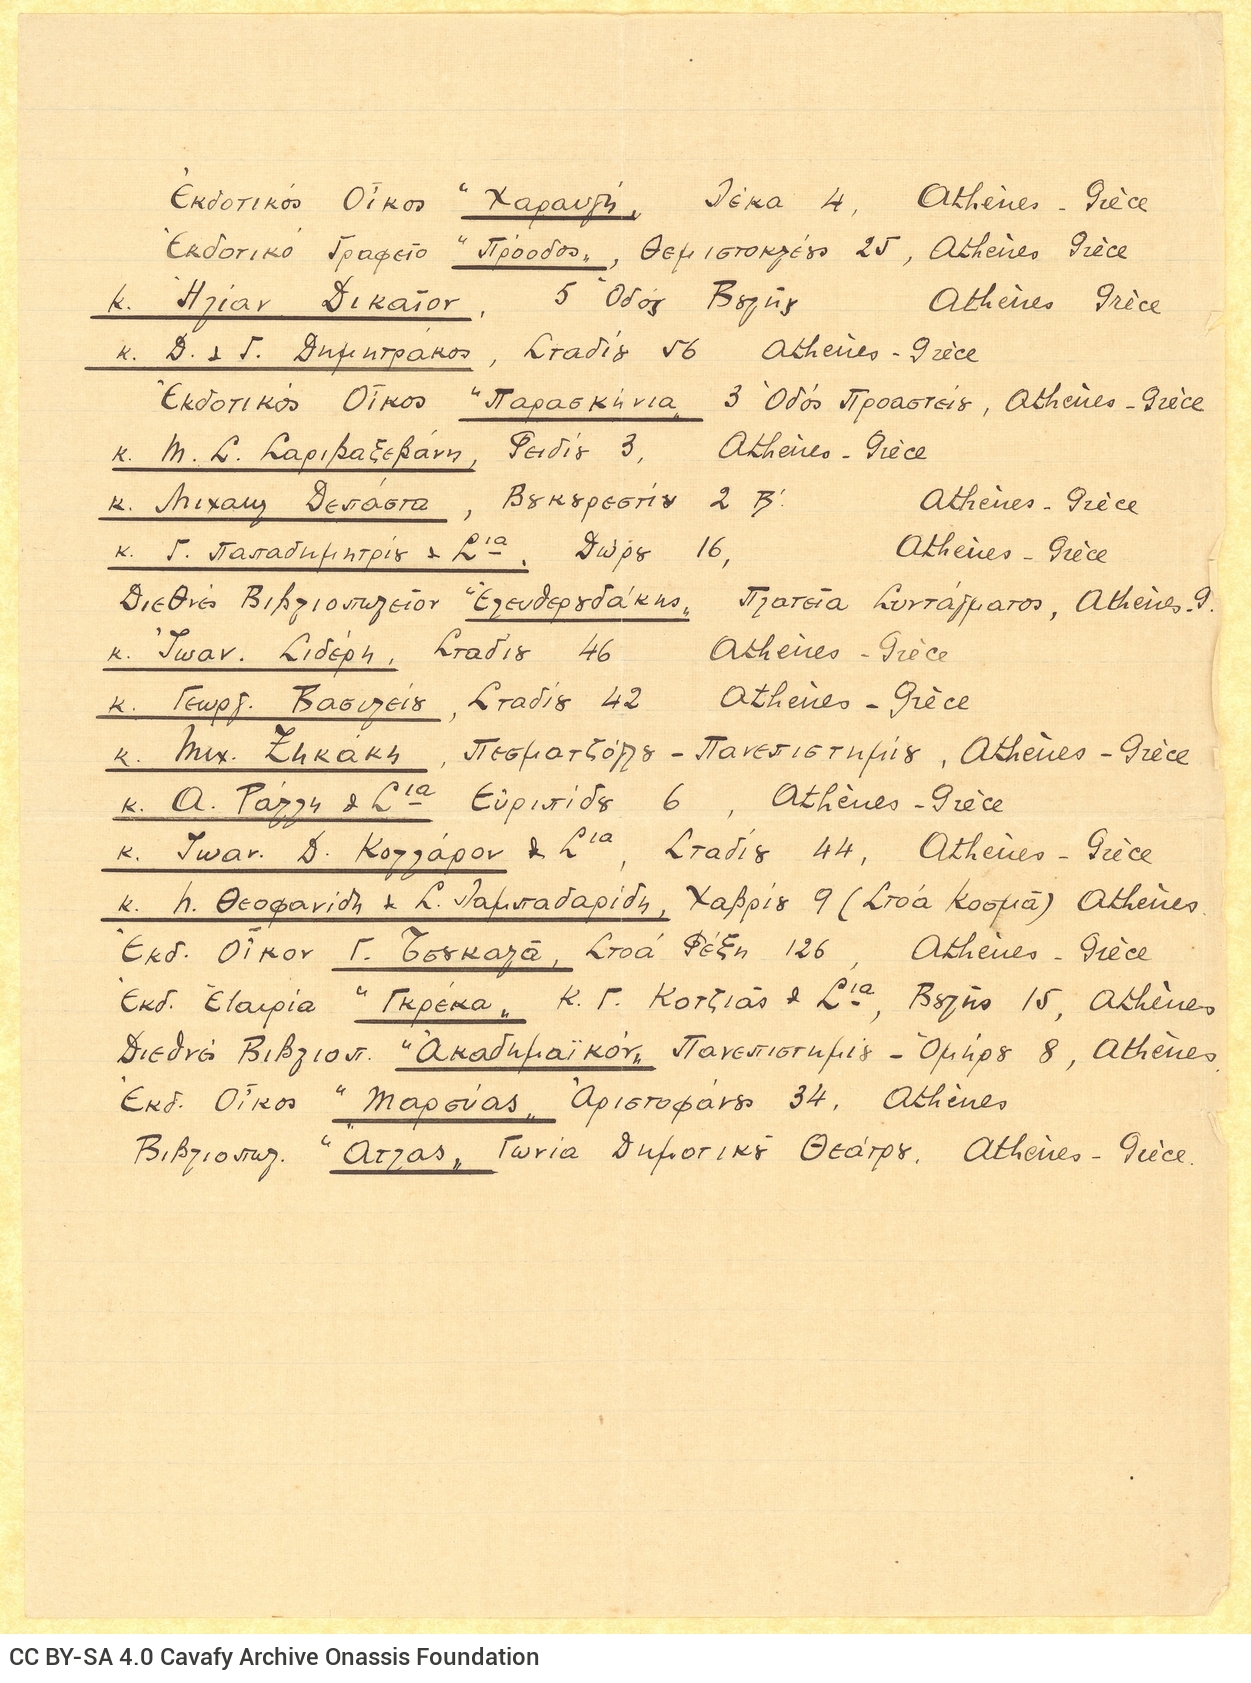 Ἐκδοτικός Οἶκος "Χαραυγή„ Γέκα 4, Athènes - Grèce
Ἐκδοτικό Γραφεῖο "Πρόοδος„, Θεμιστοκλέȣς 25, Athènes Grèce
κ. Ἠλίαν Δικαῖον, 5 Ὁδός Βȣλῆς Athènes Grèce
κ. Δ. & Γ. Δημητράκος, Σταδίȣ 56 Athènes - Grèce
Ἐκδοτικός Οἶκος "Παρασκήνια„ 3 Ὁδός Προαστείȣ, Athènes - Grèce
κ. Μ. Σ. Σαριβαξεβάνη, Φειδίȣ 3, Athènes - Grèce
κ. Μιχαηλ Δεπάστα, Βȣκȣρεστίȣ 2 Β! Athènes - Grèce
κ. Γ. Παπαδημητρίȣ & Σια, Δώρȣ 16, Athènes - Grèce
Διεθνές Βιβλιοπωλεῖον "Ἐλευθερȣδάκης„ Πλατεῖα Συντάγματος, Athènes - G.
κ. Ἰωαν. Σιδέρη, Σταδίȣ 46 Athènes - Grèce
κ. Γεωργ. Βασιλείȣ, Σταδίȣ 42 Athènes - Grèce
κ. Μιχ. Ζηκάκη, Πεσματζόγλȣ - Πανεπιστημίȣ, Athènes - Grèce
κ. Α. Ράλλη & Σια Εὐριπίδȣ 6, Athènes - Grèce
κ. Ἰωαν. Δ. Κολλάρον & Σια, Σταδίȣ 44, Athènes - Grèce
κ. Ν. Θεοφανίδη & Σ. Λαμπαδαρίδη, Χαβρίȣ 9 (Στοά Κοσμᾶ) Athènes.
Ἐκδ. Οἶκον Γ. Τσȣκαλᾶ, Στοά Φέξη 126, Athènes - Grèce
Ἐκδ. Ἑταιρία "Γκρέκα„ Κ. Γ. Κοτζιᾶς & Σια, Βȣλῆς 15, Athènes
Διεθνές Βιβλιοπ. "Ἀκαδημαϊκόν„ Πανεπιστημίȣ - Ὁμήρȣ 8, Athènes.
Ἐκδ. Οἶκος "Μαρσύας„ Ἀριστοφάνȣς 34, Athènes
Βιβλιοπωλ. "Ατλας„ Γωνία Δημοτικȣ͂ Θεάτρȣ. Athènes - Grèce.
CC BY-SA 4.0 Cavafy Archive Onassis Foundation